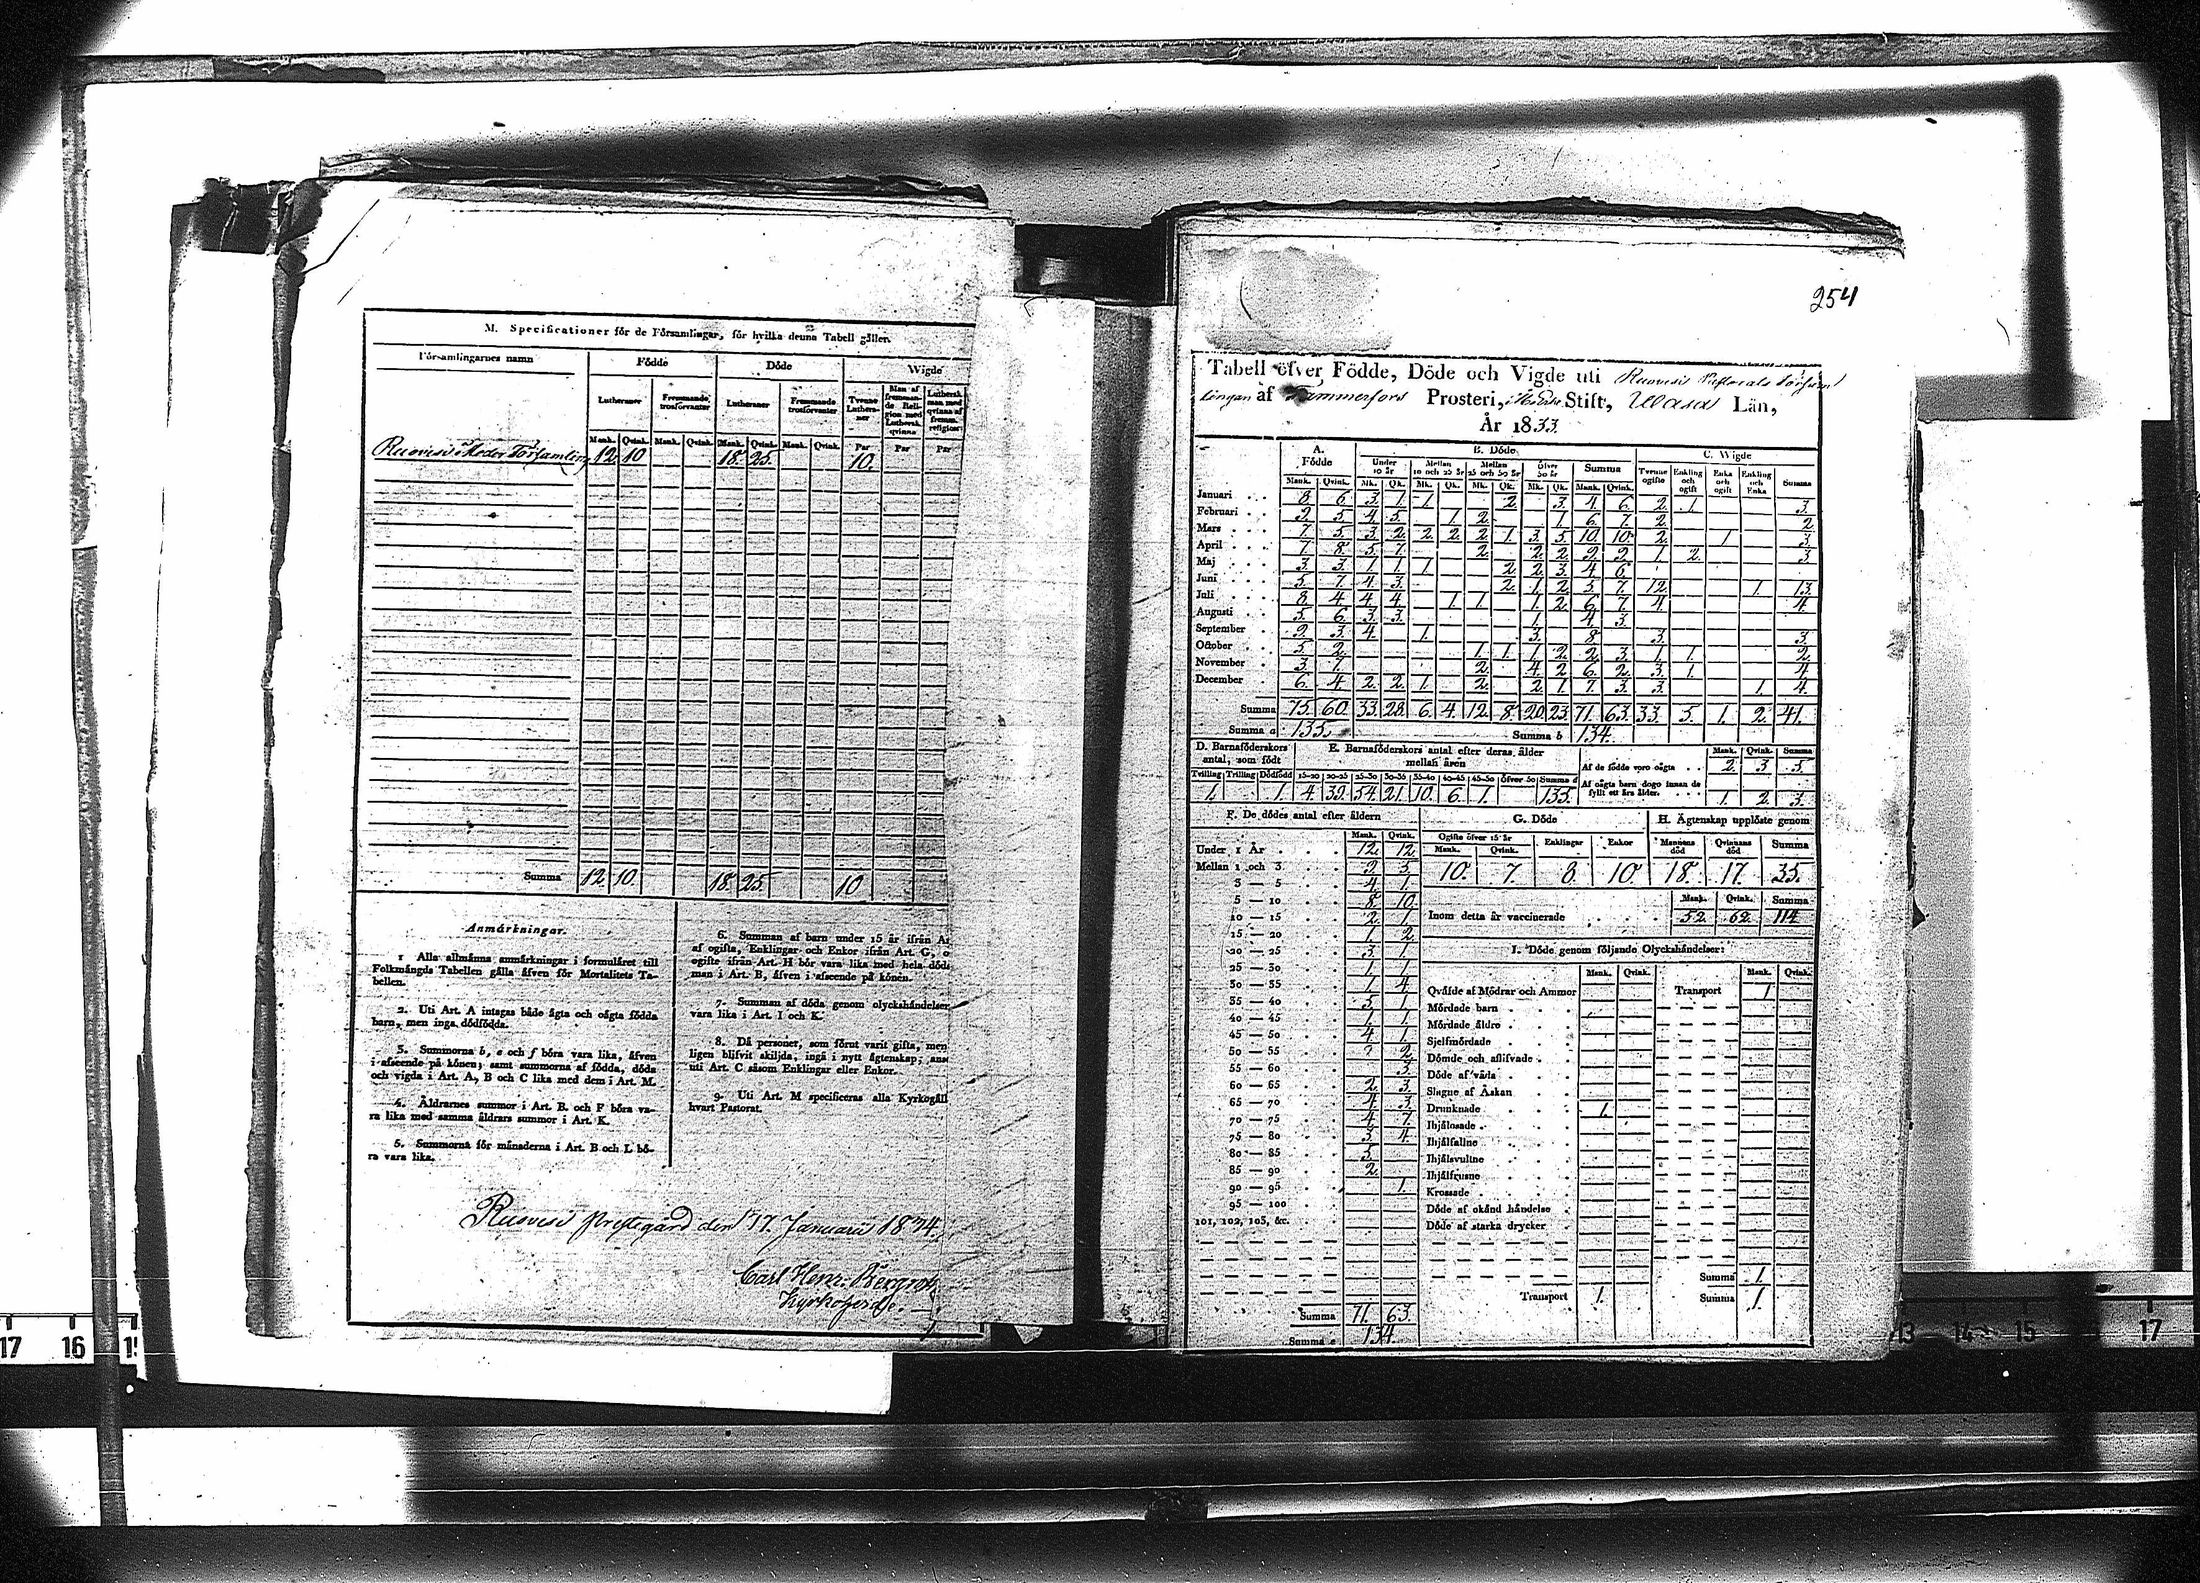 M. Specificationer för de Församlingar, för hvilka denna Tabell gäller.
Församlingarnes namn Födde Döde Wigde
Lutheraner Fremmande trosförvanter Lutheraner Fremmande trosförvanter Tvenne Lutheraner Man af fremmande Religion med Luthersk qvinna Luthersk man med qvinna af fremm. religion
Mank. Qvink. Mank. Qvink. Mank. Qvink. Mank. Qvink. Par Par Par
Ruovesi Moder Församling 12 10 18. 25. 10.
Summa 12. 10. 18. 25. 10
Anmärkningar.
1 Alla allmänna anmärkningar i formuläret till
Folkmängds Tabellen gälla äfven för Mortalitets Ta-
bellen.
2. Uti Art. A intagas både ägta och oägta födda
barn, men inga dödfödda.
3. Summorna b, e och f böra vara lika, äfven
i afseende på könen; samt summorna af födda, döda
och vigda i Art. A, B och C lika med dem i Art. M.
4. Åldrarnes summor i Art. B och F böra va-
ra lika med samma åldrars summor i Art. K.
5. Summorna för månaderna i Art. B och L bö-
ra vara lika.
6. Summan af barn under 15 år ifrån Ar
af ogifta, Enklingar och Enkor ifrån Art. G, o
ogifte ifrån Art. H bör vara lika med hela döde
man i Art. B, äfven i afseende på könen.
7. Summan af döda genom olyckshändelser
vara lika i Art. I och K.
8. Då personer, som förut varit gifta, men
ligen blifvit skiljda, ingå i nytt ägtenskap; ans
uti Art. C såsom Enklingar eller Enkor.
9. Uti Art. M specificeras alla Kyrkogäll
hvart Pastorat.
Ruovesi prestegård den 17. Januarii 1834.
Carl Henr. Bergroth
Kyrkoherde.
254
Tabell öfver Födde, Döde och Vigde uti Ruovesi Pastorats Församl
lingar af Tammerfors Prosteri, Stift, Wasa Län,
År 1833.
A. Födde B. Döde C. Wigde
Under 10 år Mellan 10 och 25 år Mellan 25 och 50 år Öfver 50 år Summa Tvenne ogifte Enkling och ogift Enka och ogift Enkling och Enka Summa
Mank. Qvink. Mk. Qk. Mk. Qk. Mk. Qk. Mk. Qk. Mank. Qvink.
Januari 8. 6. 3. 1. 1. 2. 3. 4. 6. 2. 1. 3.
Februari 5. 4. 5. 1. 2. 1. 6. 7. 2. 2
Mars 7. 5. 3. 2. 2. 2. 2. 1. 3. 5. 10. 10. 2. 1. 3.
April 7. 8. 5. 7. 2. 2. 2. 9. 9. 1. 2. 3.
Maj 3. 3. 1. 1. 1. 2. 2. 3. 4. 6.
Juni 5. 7. 4. 3. 2. 1. 2. 5. 7. 12. 1. 13.
Juli 8. 4. 4. 4. 1. 1. 1. 2. 6. 7. 4. 4.
Augusti 5. 6. 3. 3. 1. 4. 3.
September 3. 4. 1. 3. 8. 3. 3.
October 5. 2. 1. 1. 1. 2. 2. 3. 1. 1. 2.
November 3. 7. 2. 4. 2. 6. 2. 3. 1. 4.
December 6. 4. 2. 2. 1. 2. 2. 1. 7. 3. 3. 1. 4.
Summa 75. 60. 33. 28. 6. 4. 12. 8. 20. 23. 71. 63. 33. 5. 1. 2. 41.
Summa a 135. Summa b 134.
D. Barnaföderskors antal, som födt
Tvilling Trilling Dödfödd
1. 1.
E. Barnaföderskors antal efter deras ålder mellan åren
15-20 20-25 25-30 30-35 35-40 40-45 45-50 Öfver 50 Summa d
4. 39. 54. 21. 10. 6. 1. 135.
Mank. Qvink. Summa
Af de födde voro oägta 2. 3. 5.
Af oägta barn dogo innan de fyllt ett års ålder. 1. 2. 3.
F. De dödes antal efter åldern
Mank. Qvink.
Under 1 År 12. 12.
Mellan 1 och 3 2. 5.
3 — 5 4. 1.
5 — 10 8. 10.
10 — 15 2. 1.
15 — 20 1. 2.
20 — 25 3. 1.
25 — 30 1. 1.
30 — 35 1. 4.
35 — 40 5. 1.
40 — 45 1. 1.
45 — 50 4. 1.
50 — 55 2.
55 — 60 3.
60 — 65 2. 3.
65 — 70 4. 3.
70 — 75 4. 7.
75 — 80 3. 4.
80 — 85 5.
85 — 90 2.
90 — 95 1.
95 — 100
101, 102, 103, &c.
Summa 71. 63.
Summa e 134
G. Döde
Ogifte öfver 15 år Enklingar Enkor
Mank. Qvink.
10. 7. 8. 10.
H. Ägtenskap upplöste genom
Mannens död Qvinnans död Summa
18. 17. 35.
Mank. Qvink. Summa
Inom detta år vaccinerade 52. 62. 114
I. Döde genom följande Olyckshändelser:
Mank. Qvink. Mank. Qvink.
Qväfde af Mödrar och Ammor Transport 1
Mördade barn
Mördade äldre
Sjelfmördade
Dömde och aflifvade
Döde af våda
Slagne af Åskan
Drunknade 1.
Ihjälosade
Ihjälfallne
Ihjälsvultne
Ihjälfrusne
Krossade
Döde af okänd händelse
Döde af starka drycker
Summa 1.
Transport 1. Summa 1.
17 16 15 13 14 15 17